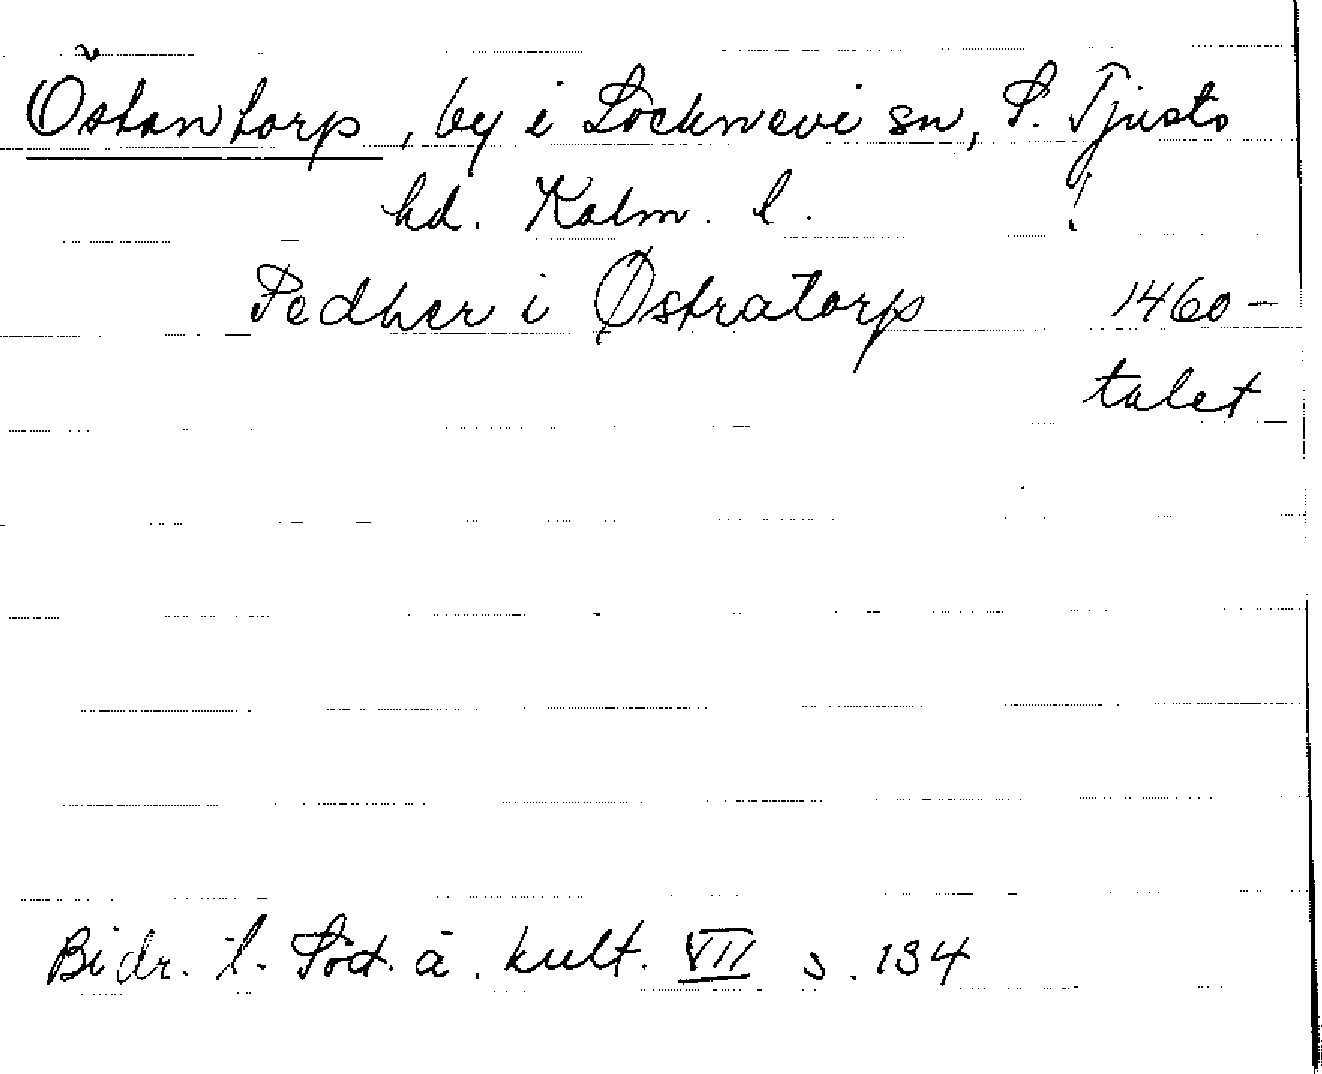 Östantorp, by i Locknevi sn, S. Tjusts
hd. Kalm. l. !
Pedher i Østratorp 1460-
talet
Bidr. t. Söd. ä. kult. VII s. 134